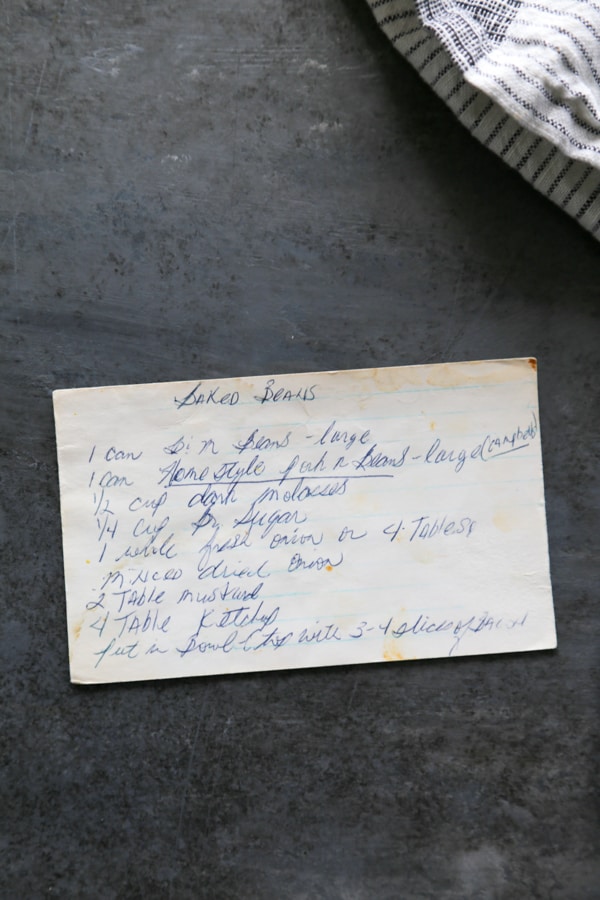 BAKED BEANS
1 can B&M Beans - large
1 can Homestyle pork n Beans - large (Campbells)
1/2 cup dark molasses
1/4 cup Br Sugar
1 whole fresh onion or 4 Tables
minced dried onion
2 Table mustard
4 Table Ketchup
Put in Bowl & top with 3-4 slices of Bacon